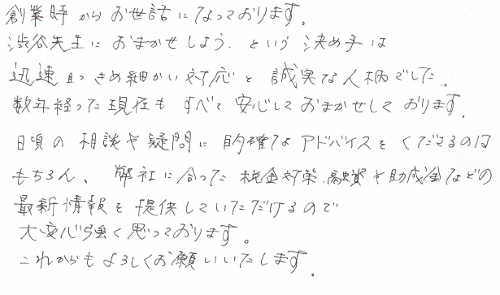 創業時からお世話になっております。
渋谷先生におまかせしよう、という決め手は
迅速且つきめ細かい対応と誠実な人柄でした。
数年経った現在もすべて安心しておまかせしております。
日頃の相談や疑問に的確なアドバイスをくださるのは
もちろん、弊社に合った税金対策、融資や助成金などの
最新情報を提供していただけるので
大変心強く思っております。
これからもよろしくお願いいたします。